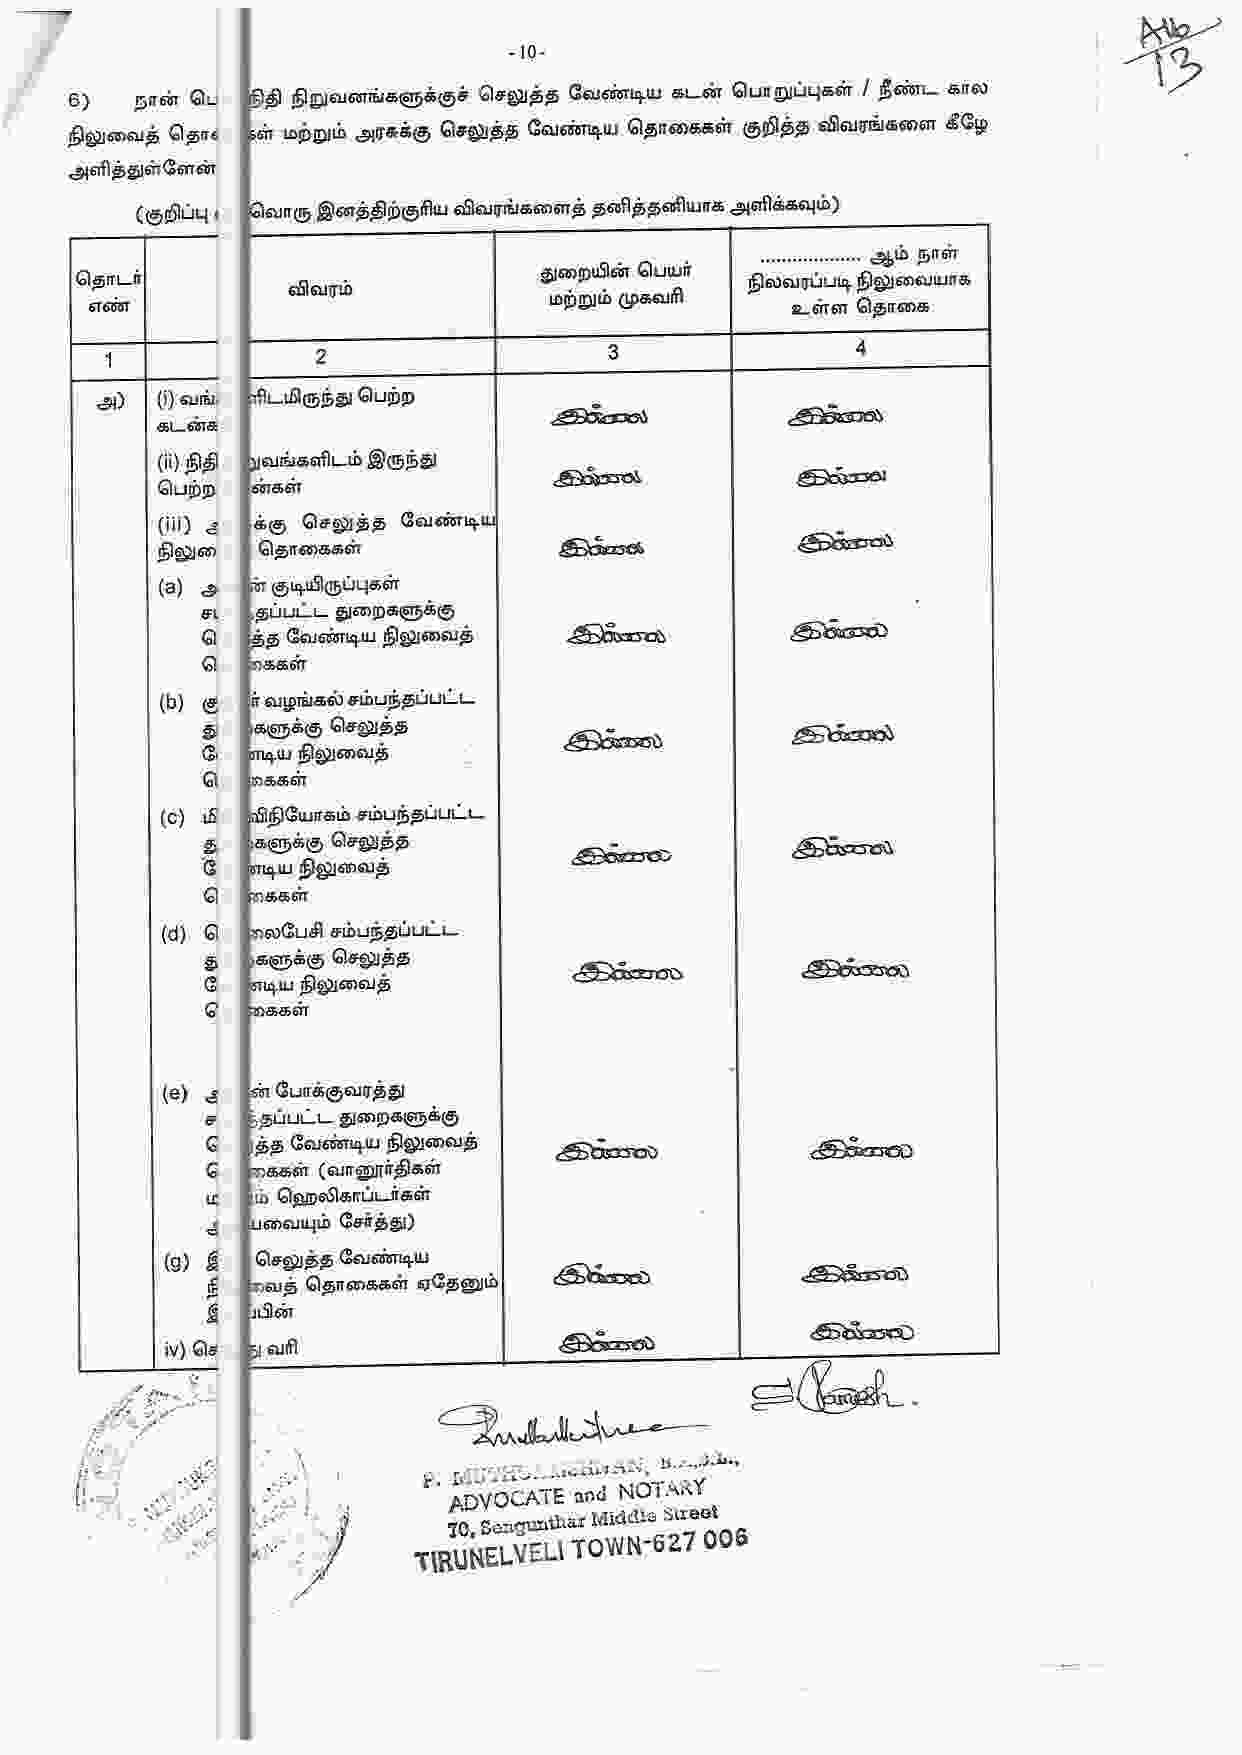 -10-
A16
13
6) நான் பொ நிதி நிறுவனங்களுக்குச் செலுத்த வேண்டிய கடன் பொறுப்புகள் / நீண்ட கால
நிலுவைத் தொ கள் மற்றும் அரசுக்கு செலுத்த வேண்டிய தொகைகள் குறித்த விவரங்களை கீழே
அளித்துள்ளேன்
(குறிப்பு வொரு இனத்திற்குரிய விவரங்களைத் தனித்தனியாக அளிக்கவும்)
தொடர் எண்
விவரம்
துறையின் பெயர் மற்றும் முகவரி
................... ஆம் நாள் நிலவரப்படி நிலுவையாக உள்ள தொகை
1 2 3 4
அ) (i) வங் ளிடமிருந்து பெற்ற
கடன்க இல்லை இல்லை
(ii) நிதி றுவங்களிடம் இருந்து
பெற்ற ன்கள் இல்லை இல்லை
(iii) அ க்கு செலுத்த வேண்டிய
நிலுவை தொகைகள் இல்லை இல்லை
(a) அ ன் குடியிருப்புகள்
சம் தப்பட்ட துறைகளுக்கு
த்த வேண்டிய நிலுவைத் இல்லை இல்லை
கைகள்
(b) கு ர் வழங்கல் சம்பந்தப்பட்ட
து களுக்கு செலுத்த
வே டிய நிலுவைத் இல்லை இல்லை
கைகள்
(c) மி விநியோகம் சம்பந்தப்பட்ட
து களுக்கு செலுத்த
வே டிய நிலுவைத் இல்லை இல்லை
கைகள்
(d) லைபேசி சம்பந்தப்பட்ட
து களுக்கு செலுத்த
வே டிய நிலுவைத் இல்லை இல்லை
கைகள்
(e) அ ன் போக்குவரத்து
ச தப்பட்ட துறைகளுக்கு
த்த வேண்டிய நிலுவைத் இல்லை இல்லை
கைகள் (வானூர்திகள்
ம ம் ஹெலிகாப்டர்கள்
அ யவையும் சேர்த்து)
(g) இ செலுத்த வேண்டிய
நி வைத் தொகைகள் ஏதேனும் இல்லை இல்லை
இ ப்பின்
iv) சொ து வரி இல்லை இல்லை
S Ramesh.
P. MUTHUKRISHNAN, B.A.,B.L.,
ADVOCATE and NOTARY
70, Sengunthar Middle Street
TIRUNELVELI TOWN-627 006